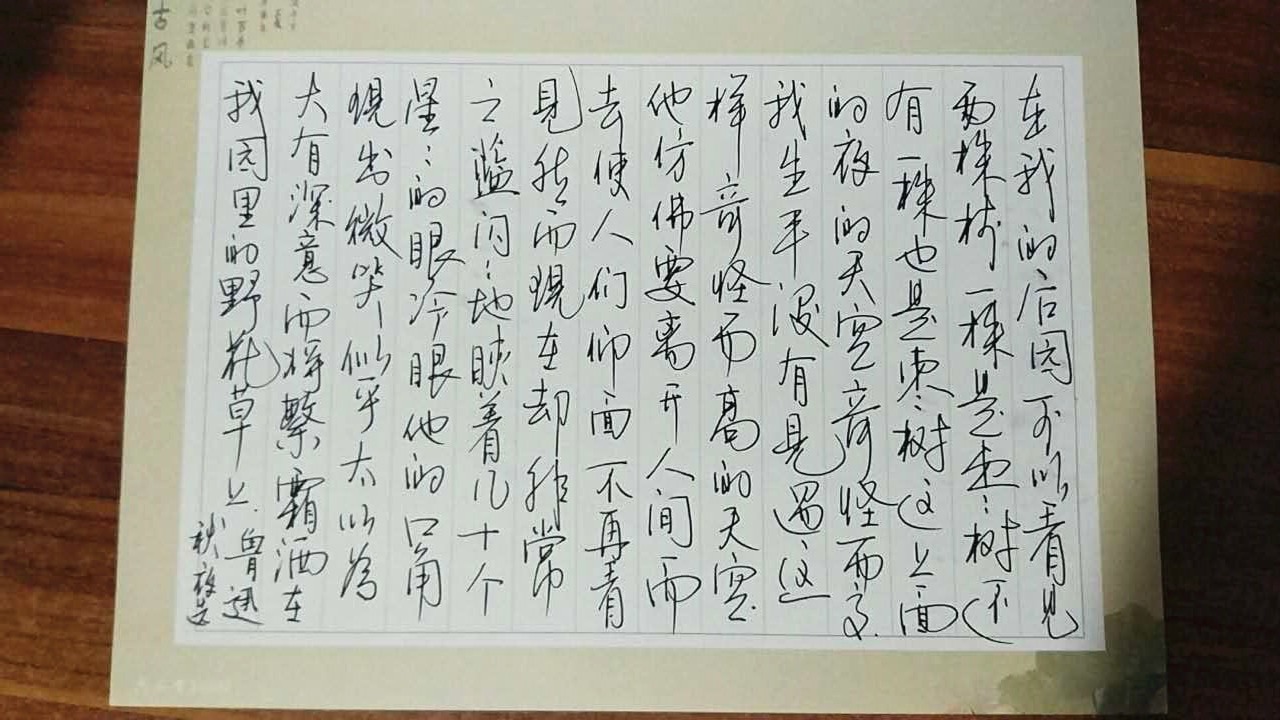 古风
在我的后园可以看见
两株树一株是枣树还
有一株也是枣树这上面
的夜的天空奇怪而高
我生平没有见過这
样奇怪而高的天空
他仿佛要离开人间而
去使人们仰面不再看
见然而现在却非常
之蓝闪々地䀹着几十个
星々的眼冷眼他的口角
现出微笑似乎大以为
大有深意而将繁霜洒在
我园里的野花草上 鲁迅
秋夜